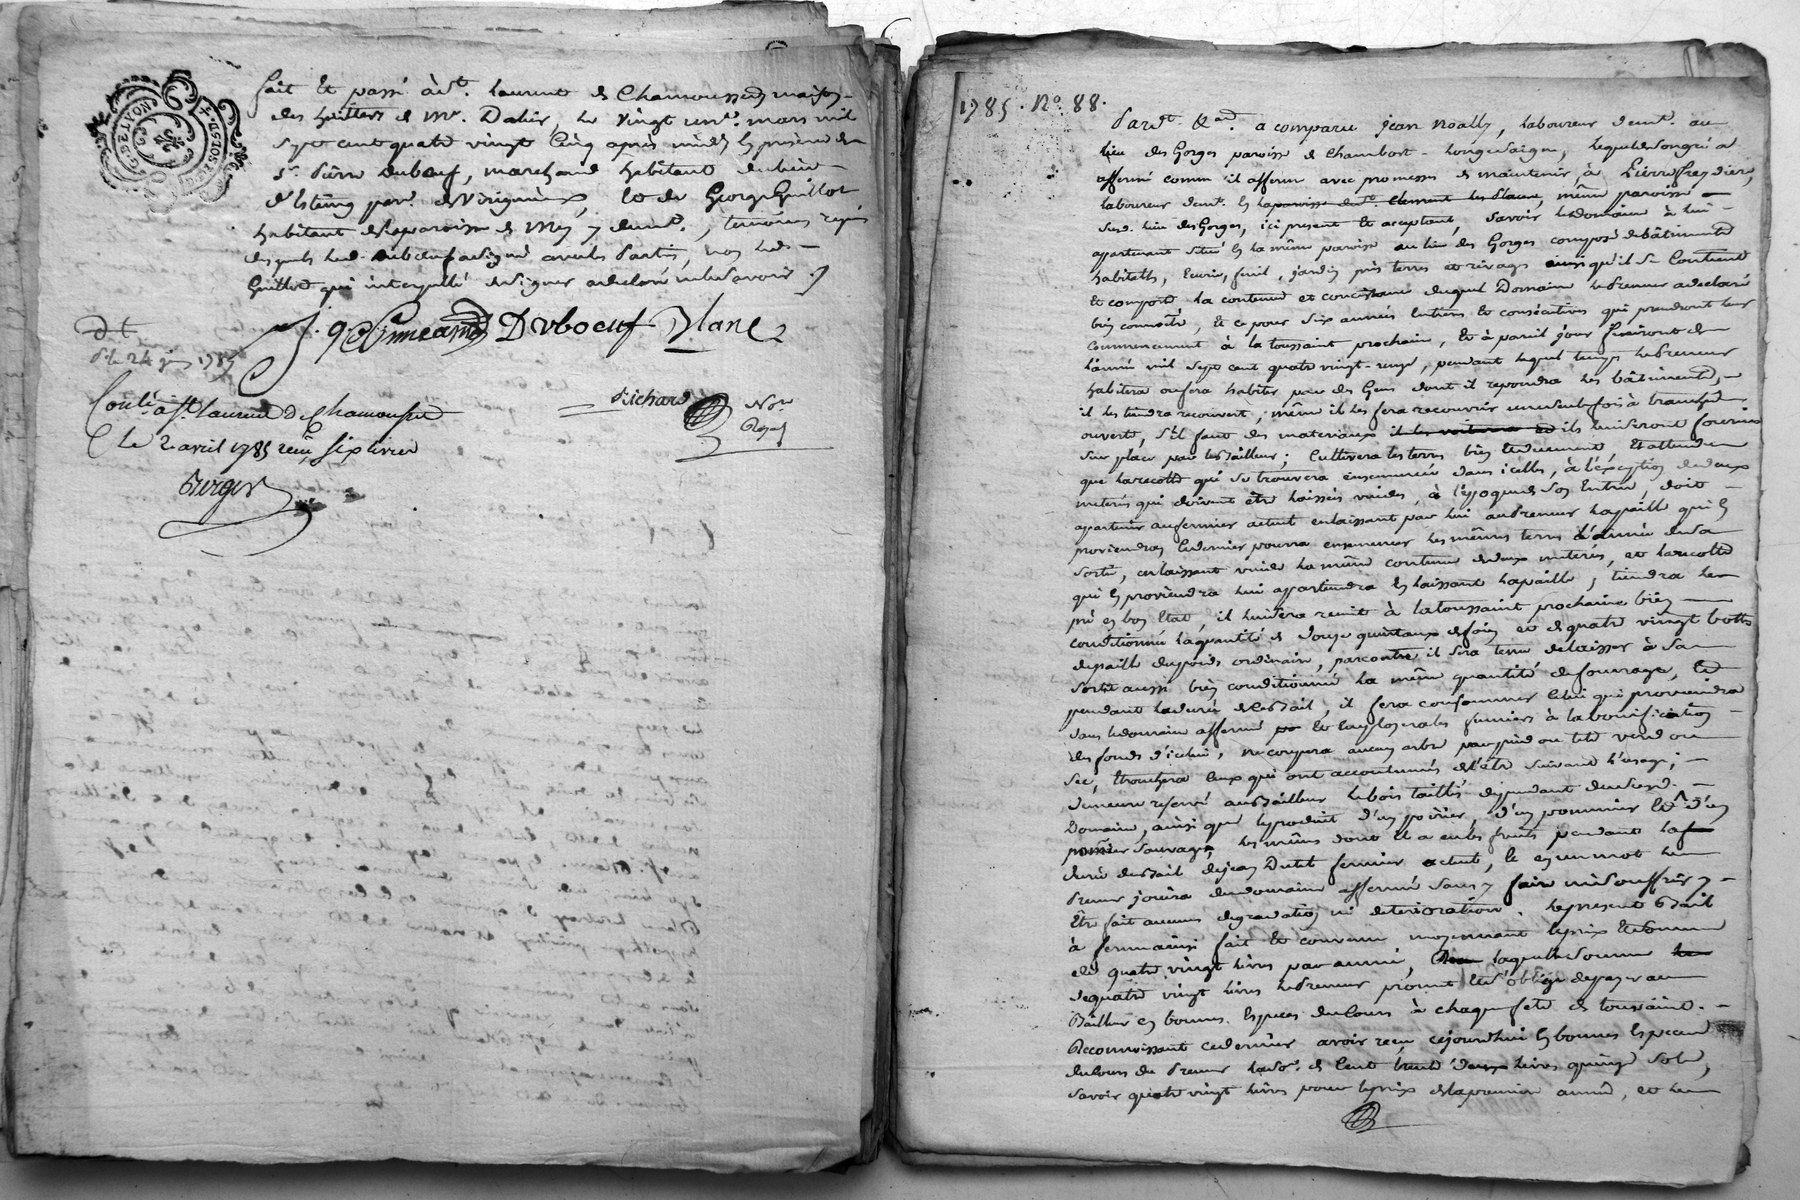 G. DE LYON
fait Et passé à St. Laurent de Chamousset maison
des héritiers de Mr. Dalier, Le vingt neuf. mars mil
sept cent quatre vingt Cinq après midy En présence de
Sr. Pierre Duboeuf, marchand habitant du lieu
et de George Guillot
habitant de la paroisse de Mey y demt., témoins requis
Lesquels led. duboeuf a signé avec les Parties, non led.
Guillot qui interpellé de signer a déclaré ne le savoir
Duboeuf
24 1785
Conlé. à St laurent De Chamousset
Le 2 avril 1785 reçu six livres
Richard Nre
Royal
1785. No. 88.
Pardt. &a. a comparu jean Noally, laboureur demt. au
lieu des Gorges paroisse de Chambost - Longessaigne, lequel de son gré a
affermé comme il afferme avec promesse de maintenir, à Pierre
laboureur demt. En la paroisse de St. Clément les Places, même paroisse
Susd. lieu des Gorges, ici présent et acceptant, savoir le domaine à lui
appartenant situé En la même paroisse au lieu des Gorges composé de bâtiments
habitable, Ecurie, fenil, jardin prés terres et rivages ainsi qu'il se Contient
Et comporte la contenue et duquel Domaine le Preneur a declaré
bien connoître, Et ce pour six années Entières Et consécutives qui prendront leur
commencement à la toussaint prochain, Et à pareil jour finiront de
l'année mil sept cent quatre vingt-onze, pendant lequel temps le Preneur
habitera ou fera habiter par des Gens dont il répondra les bâtiments,
il les tiendra recouvert, même il les fera recouvrir une seule fois à tranchée
ouverte, s'il faut des materiaux ils lui seront fournis
sur place par le Bailleur; Cultivera les terres bien Et duement, Et attendu
que la recolte qui se trouvera ensemencée dans icelles, à l'Exception de deux
meterés qui doivent être laissés vuides, à l'Epoque de son Entrée, doit
appartenir au fermier actuel en laissant par lui au Preneur la paille qui En
proviendra, Ce dernier pourra ensemencer les mêmes terres l'année de sa
sortie, en laissant vuide la même contenue de deux meterés, et la recolte
qui En proviendra lui appartiendra En laissant la paille; tiendra le
pré En bon Etat, il lui sera remit à la toussaint prochaine bien
conditionné la quantité de douze quintaux de foin et de quatre vingt bottes
de paille du poids ordinaire, par contre il sera tenu de laisser à sa
sortie aussi bien conditionné la même quantité de fourrage, Et
pendant la durée de ce Bail, il fera consommer Celui qui proviendra
dans le domaine affermé Et employera les fumiers à la bonification
des fonds d'icelui, ne coupera aucun arbre par pied ou tête verd ou
sec, Ebranchera Ceux qui ont accoutumés de l'être suivant l'usage;
demeure réservé au Bailleur le bois taillis dépendant du susd.
Domaine, ainsi que le produit d'un poirier, d'un pommier Et d'un
pommier sauvage, les mêmes dont Il a eu les fruits pendant la
durée du Bail de jean Dutel fermier actuel, Et en un mot le
Preneur jouira du domaine affermé sans y faire ni souffrir y
Être fait aucune degradation ni deterioration. Le present Bail
à ferme ainsi fait Et convenu moyennant le prix Et somme
de quatre vingt livres par année, laquelle somme
de quatre vingt livres le Preneur promet Et s'oblige de payer au
Bailleur En bonnes Especes du Cours à chaque fête de toussaint.
Reconnoissant ce dernier avoir reçu cejourdhui En bonnes Especes
du Cours du Preneur la so. de Cent trente deux livres quinze sols,
savoir quatre vingt livres pour le prix de la premiere année, et le